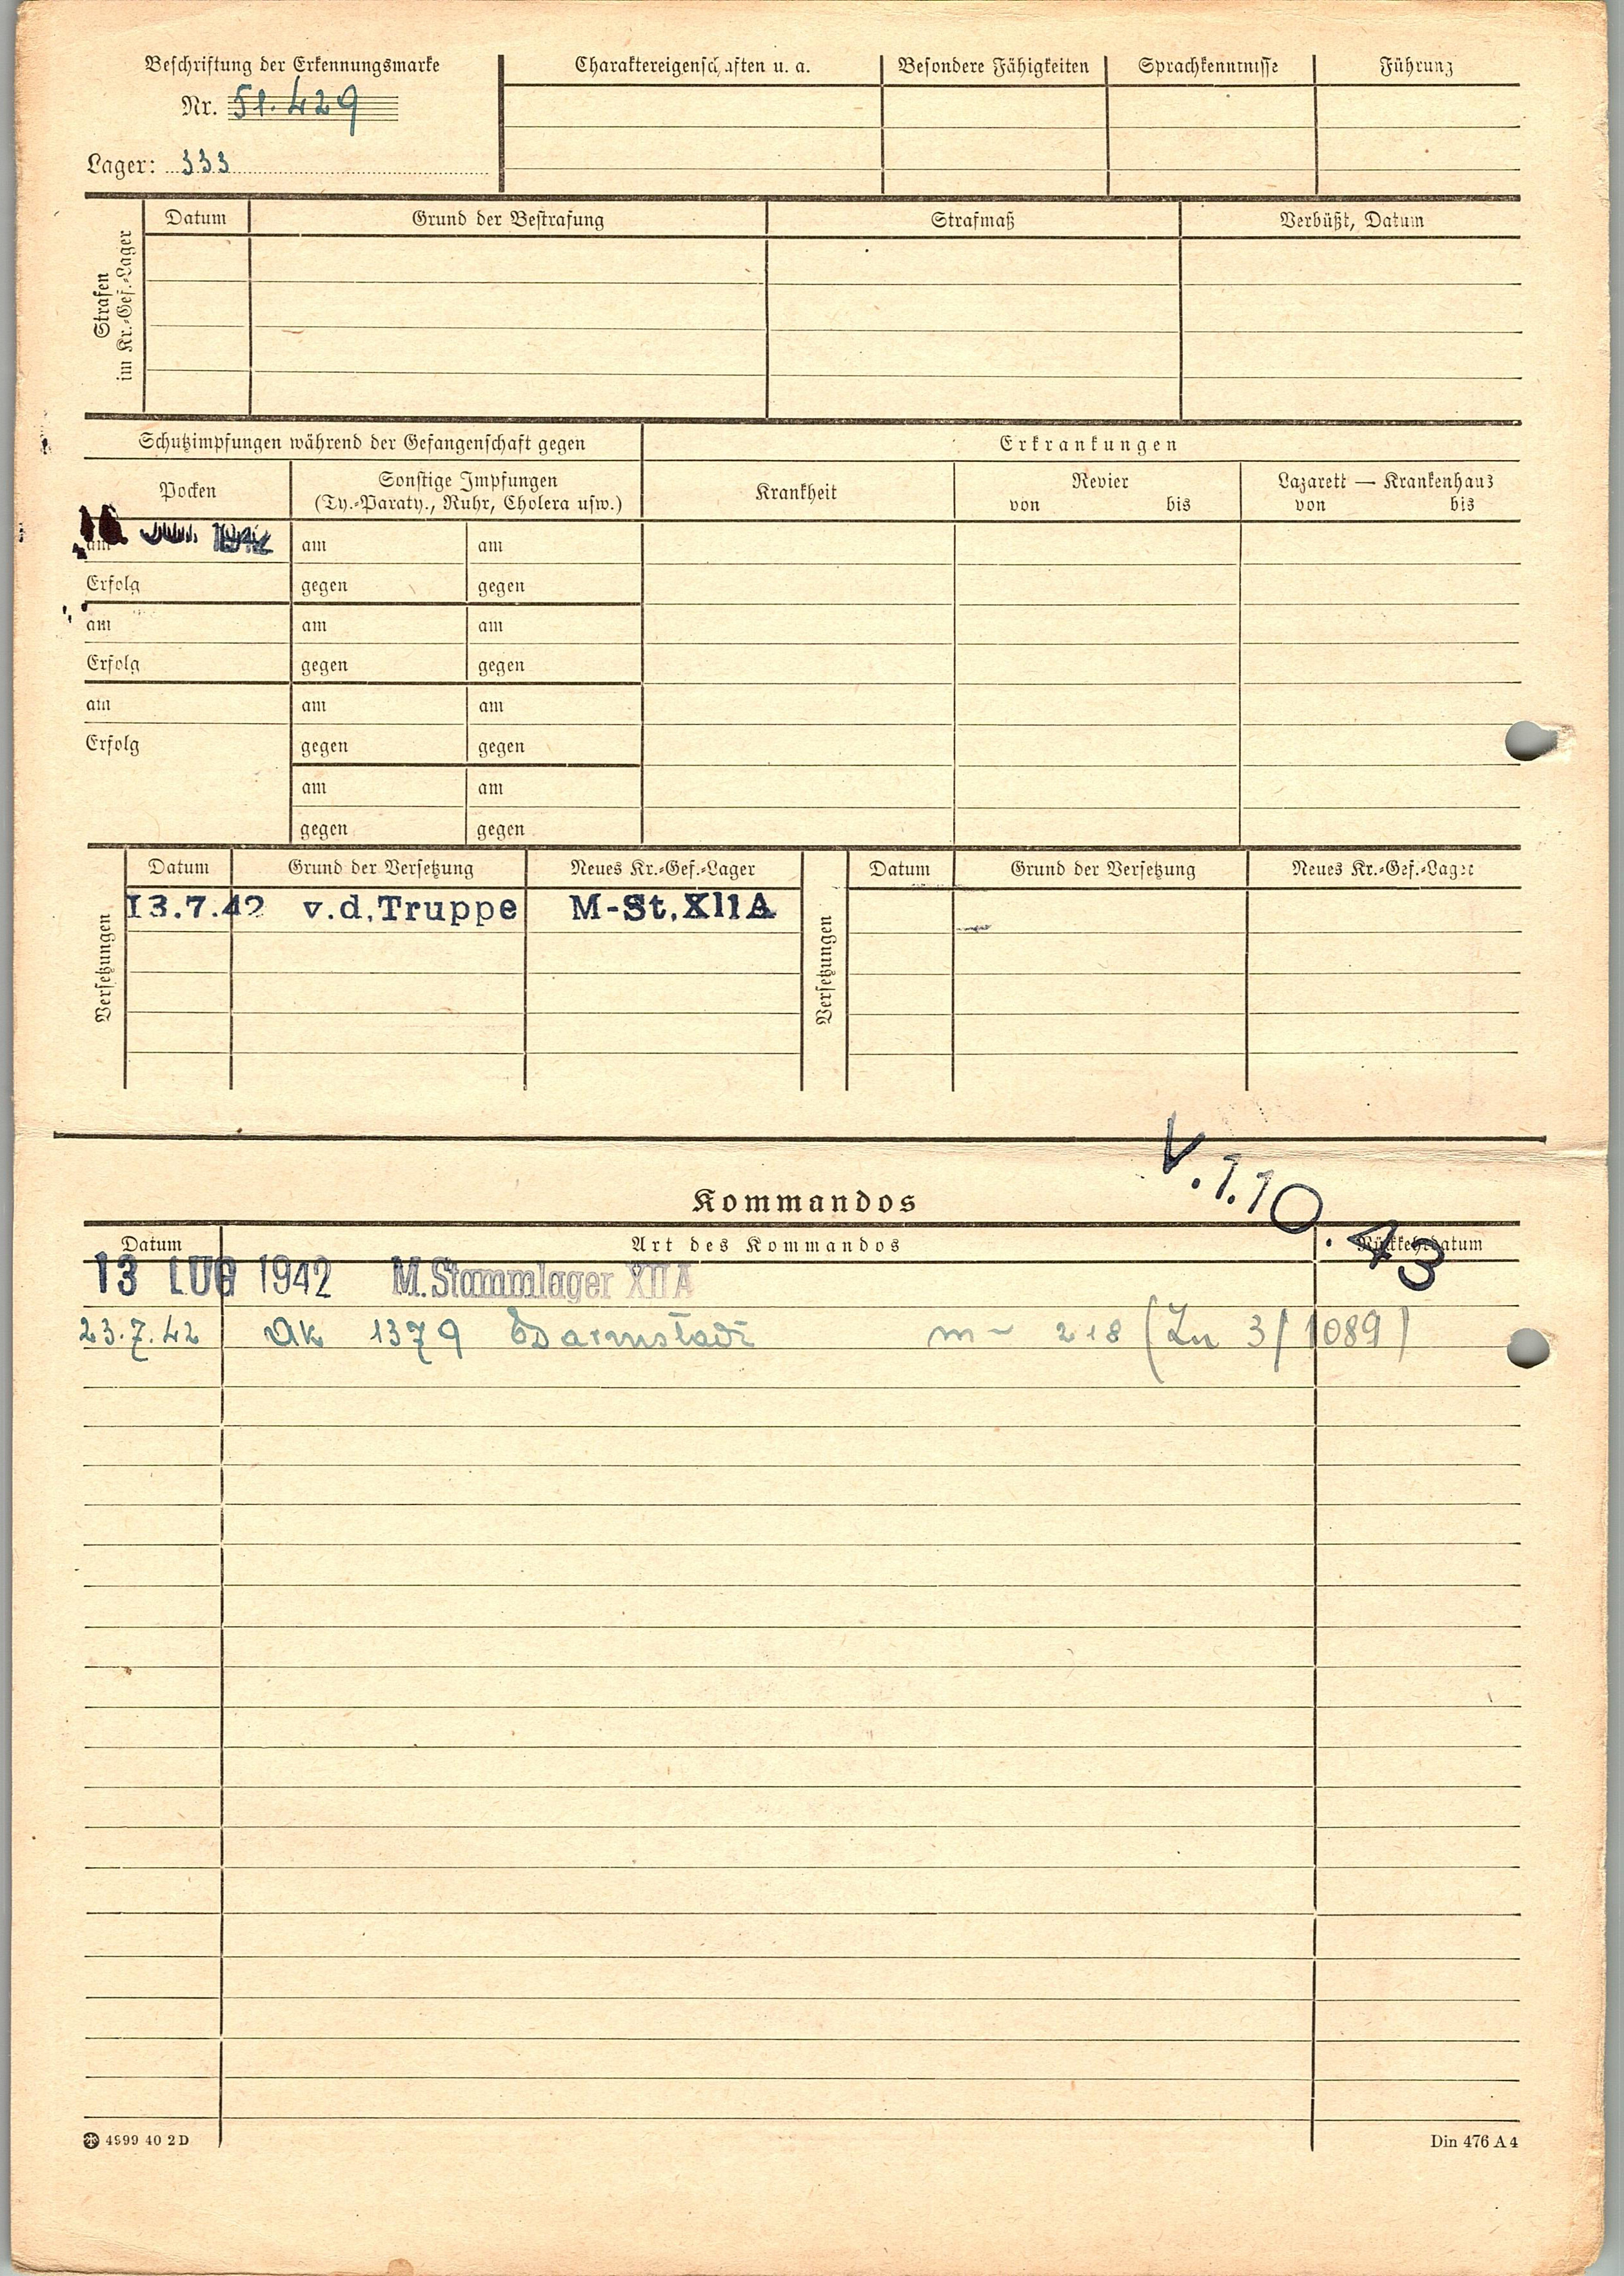 Beschriftung der Erkennungsmarke
Nr. 51.429
Lager: 333
Charaktereigenschaften u. a. Besondere Fähigkeiten Sprachkenntnisse Führung
Strafen
im Kr.-Gef.-Lager
Datum Grund der Bestrafung Strafmaß Verbüßt, Datum
Schutzimpfungen während der Gefangenschaft gegen Erkrankungen
Pocken
Sonstige Impfungen
(Ty.-Paraty., Ruhr, Cholera usw.)
Krankheit
Revier
von bis
Lazarett — Krankenhaus
von bis
am 1942 am am
Erfolg gegen gegen
am am am
Erfolg gegen gegen
am am am
Erfolg gegen gegen
am am
gegen gegen
Versetzungen
Datum Grund der Versetzung Neues Kr.-Gef.-Lager
13.7.42 v.d.Truppe M-St.XIIA
Versetzungen
Datum Grund der Versetzung Neues Kr.-Gef.-Lager
V.1.10.43
Kommandos
Datum Art des Kommandos Rückkehrdatum
13 LUG 1942 M.Stammlager XII A
23.7.42 Ak 1379 Darmstadt 218 (Zn 3/1089)
4999 40 2 D
Din 476 A 4